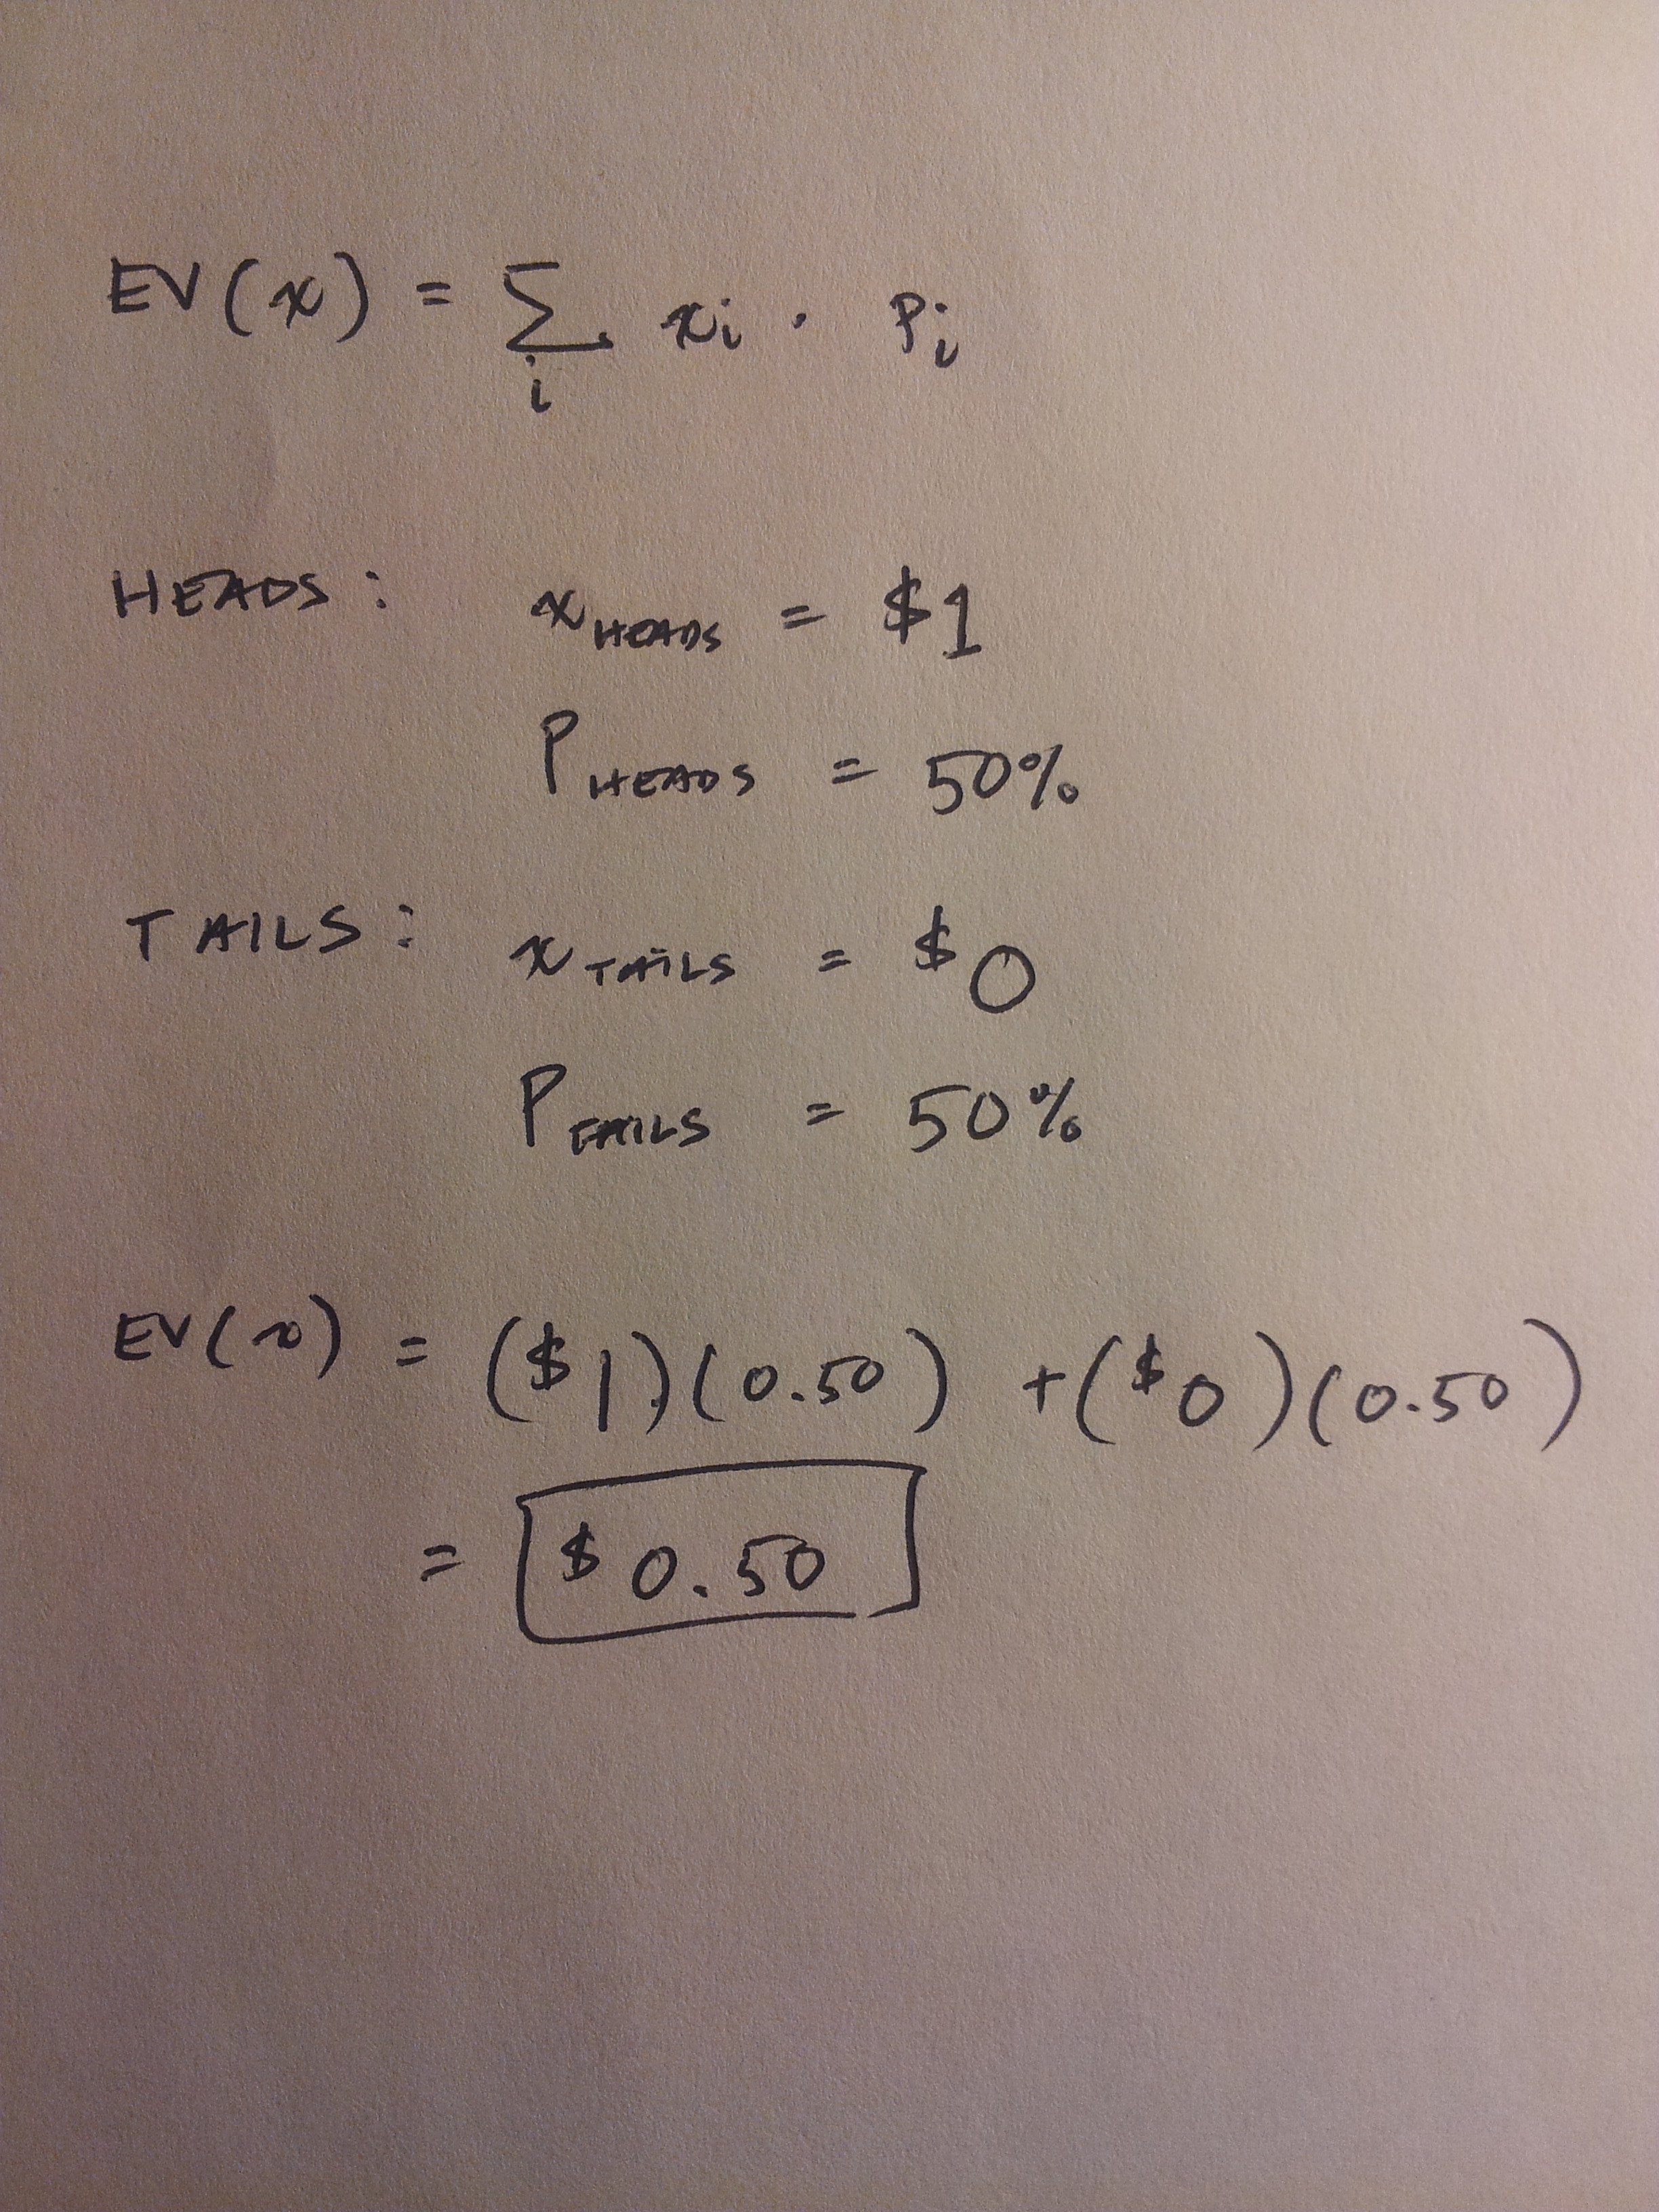 EV(x) = Σ_i x_i · P_i
HEADS: x_HEADS = $1
P_HEADS = 50%
TAILS: x_TAILS = $0
P_TAILS = 50%
EV(x) = ($1)(0.50) + ($0)(0.50)
= $0.50